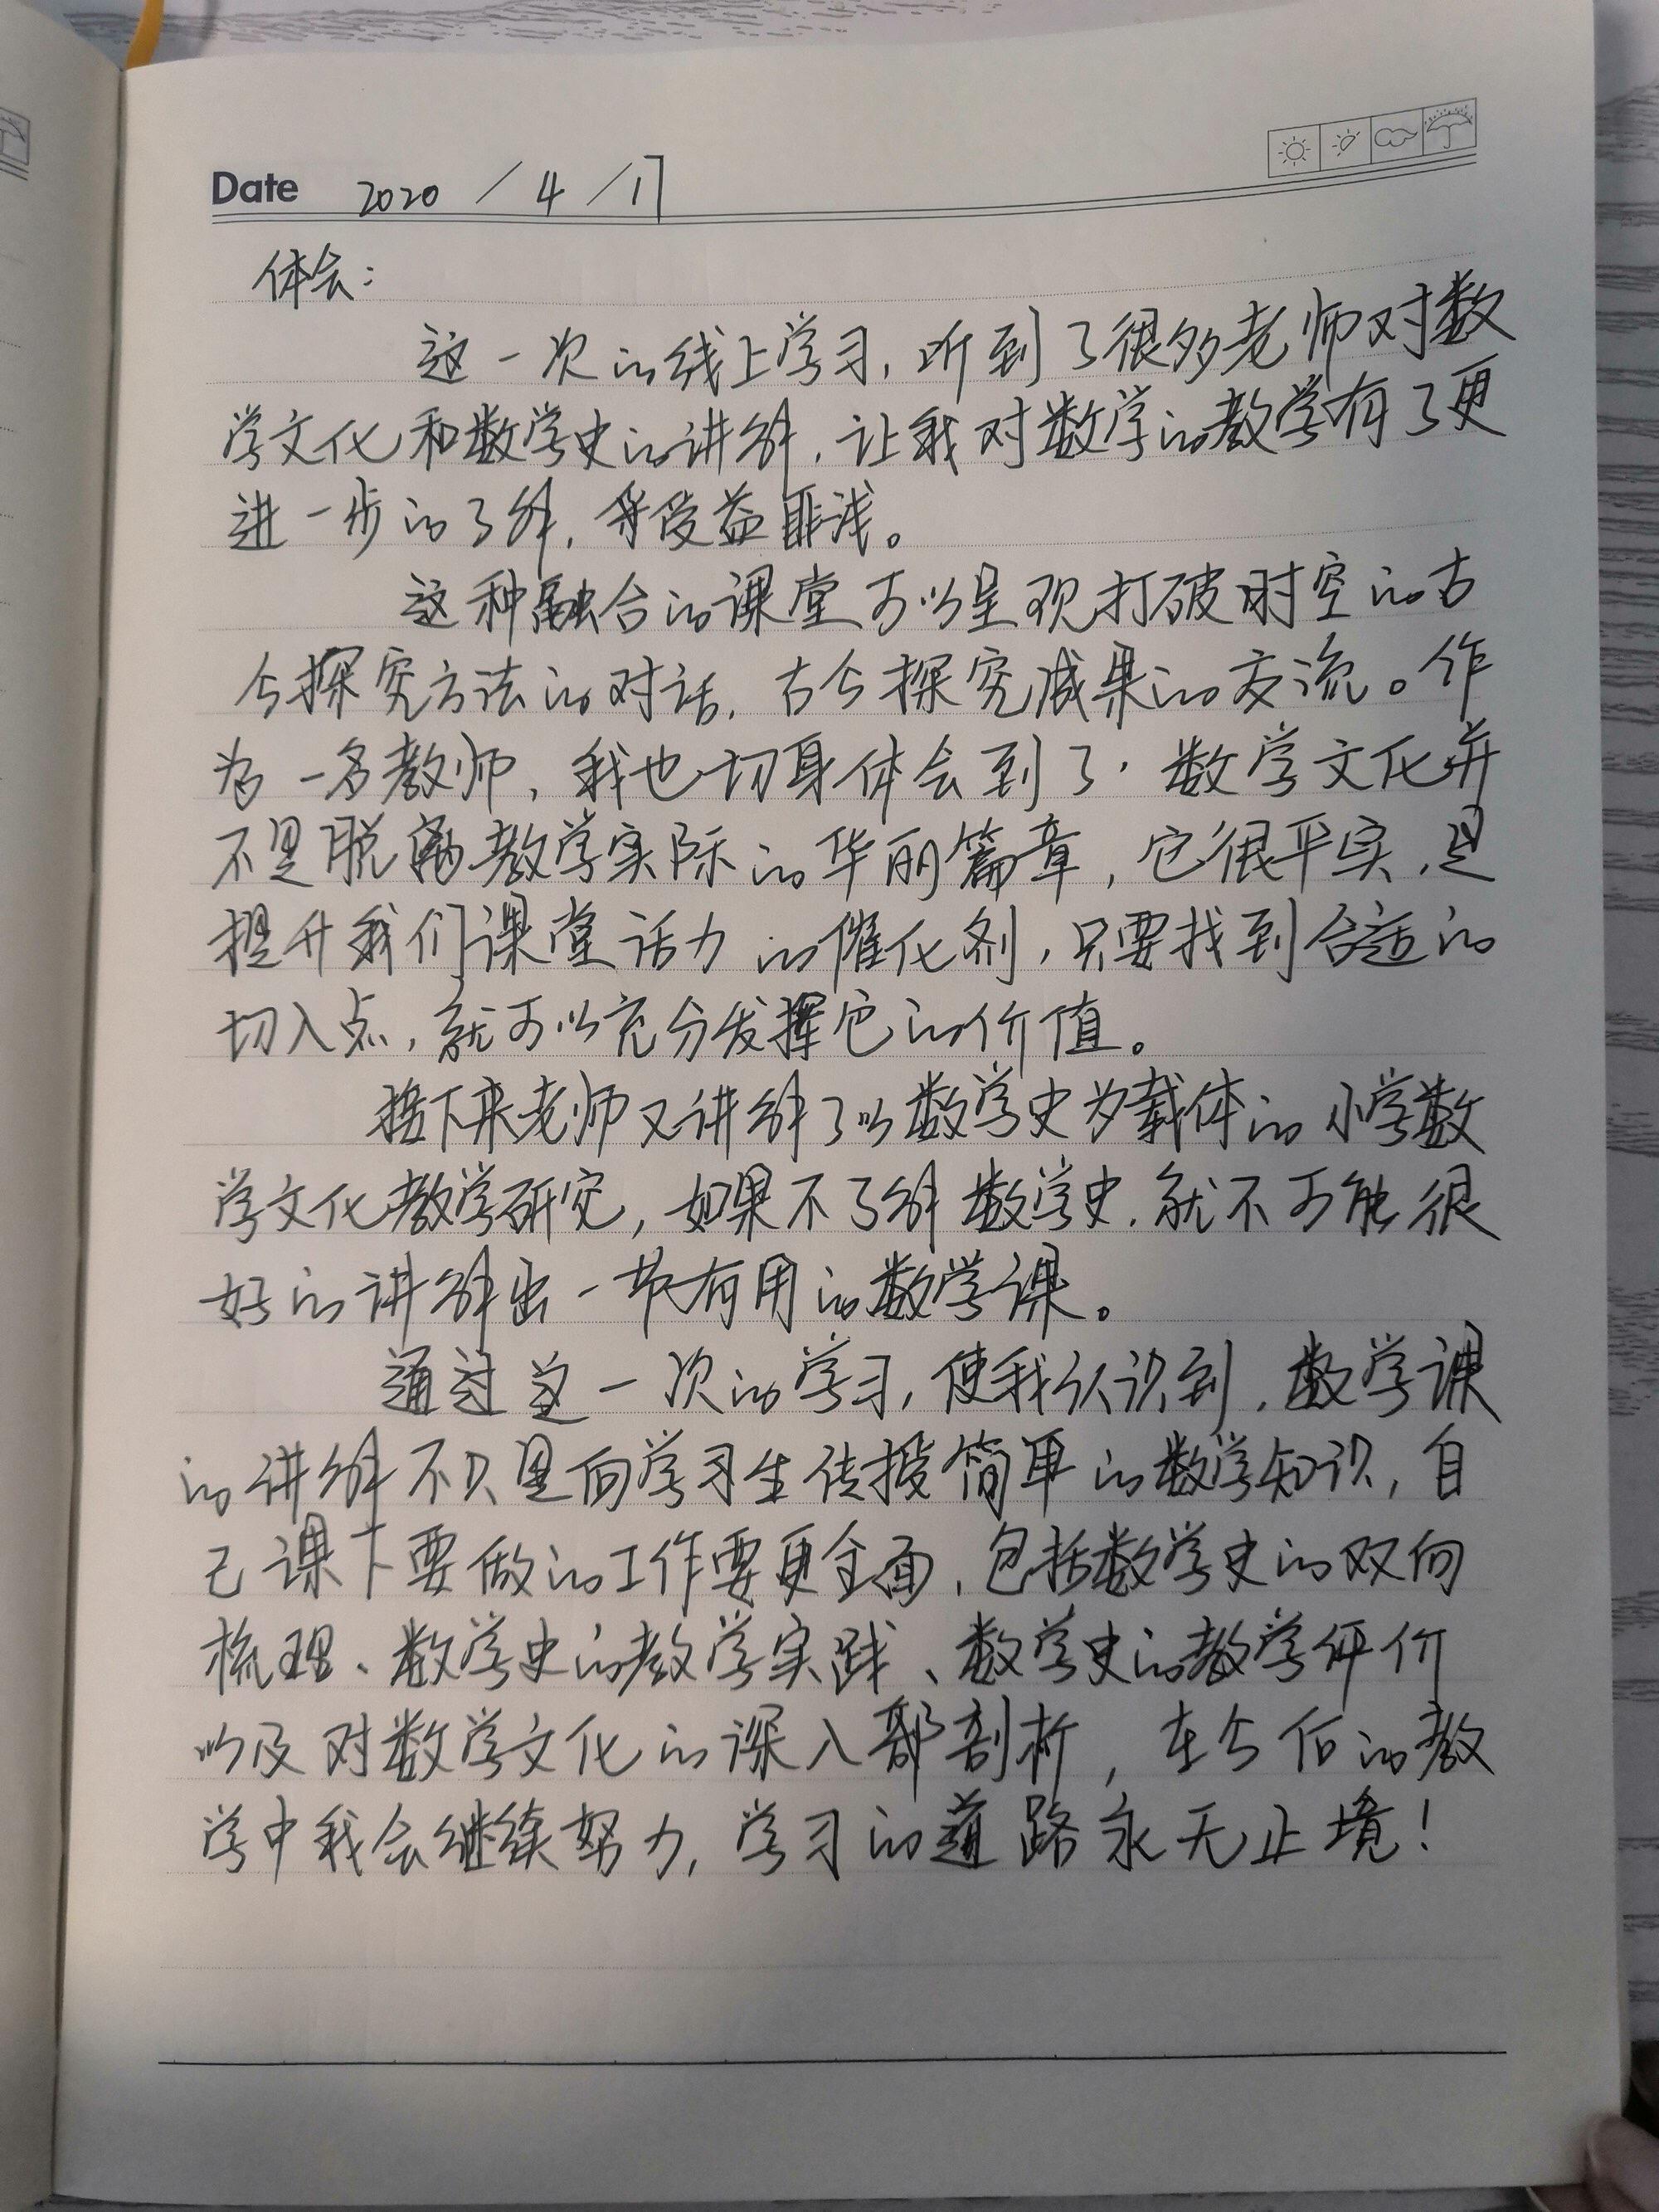 Date 2020/4/17
体会：
这一次的线上学习，听到了很多老师对数
学文化和数学史的讲解，让我对数学的教学有了更
进一步的了解，受益匪浅。
这种融合的课堂可以呈现打破时空的古
今探究方法的对话，古今探究成果的交流。作
为一名教师，我也切身体会到了，数学文化并
不是脱离教学实际的华丽篇章，它很平实，是
提升我们课堂活力的催化剂，只要找到合适的
切入点，就可以充分发挥它的价值。
接下来老师又讲解了以数学史为载体的小学数
学文化教学研究，如果不了解数学史，就不可能很
好的讲解出一节有用的数学课。
通过这一次的学习，使我认识到，数学课
的讲解不只是向学习生传授简单的数学知识，自
己课下要做的工作要更全面，包括数学史的双向
梳理、数学史的教学实践、数学史的教学评价
以及对数学文化的深入部剖析，在今后的教
学中我会继续努力，学习的道路永无止境！